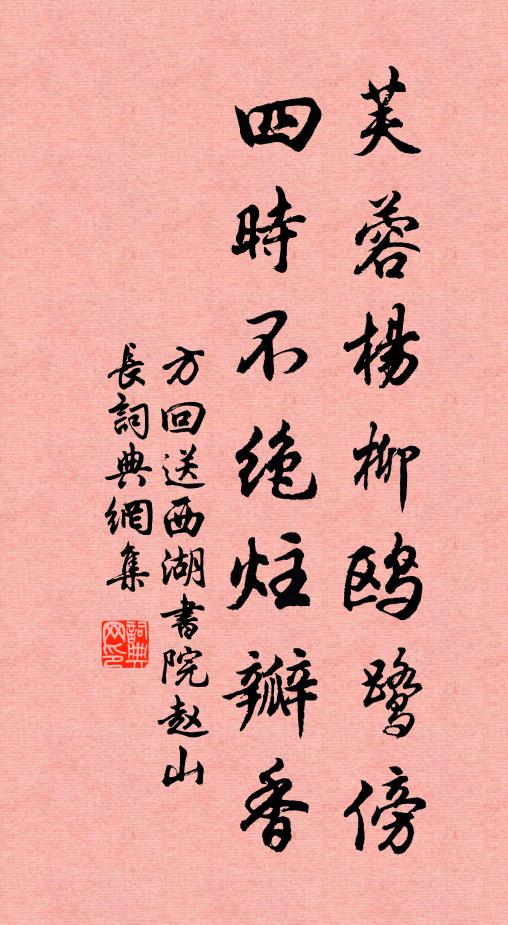 芙蓉楊柳鸥鹭傍
四時不绝炷瓣香
方回送西湖書院赵山
長詞典網集
詞典网印